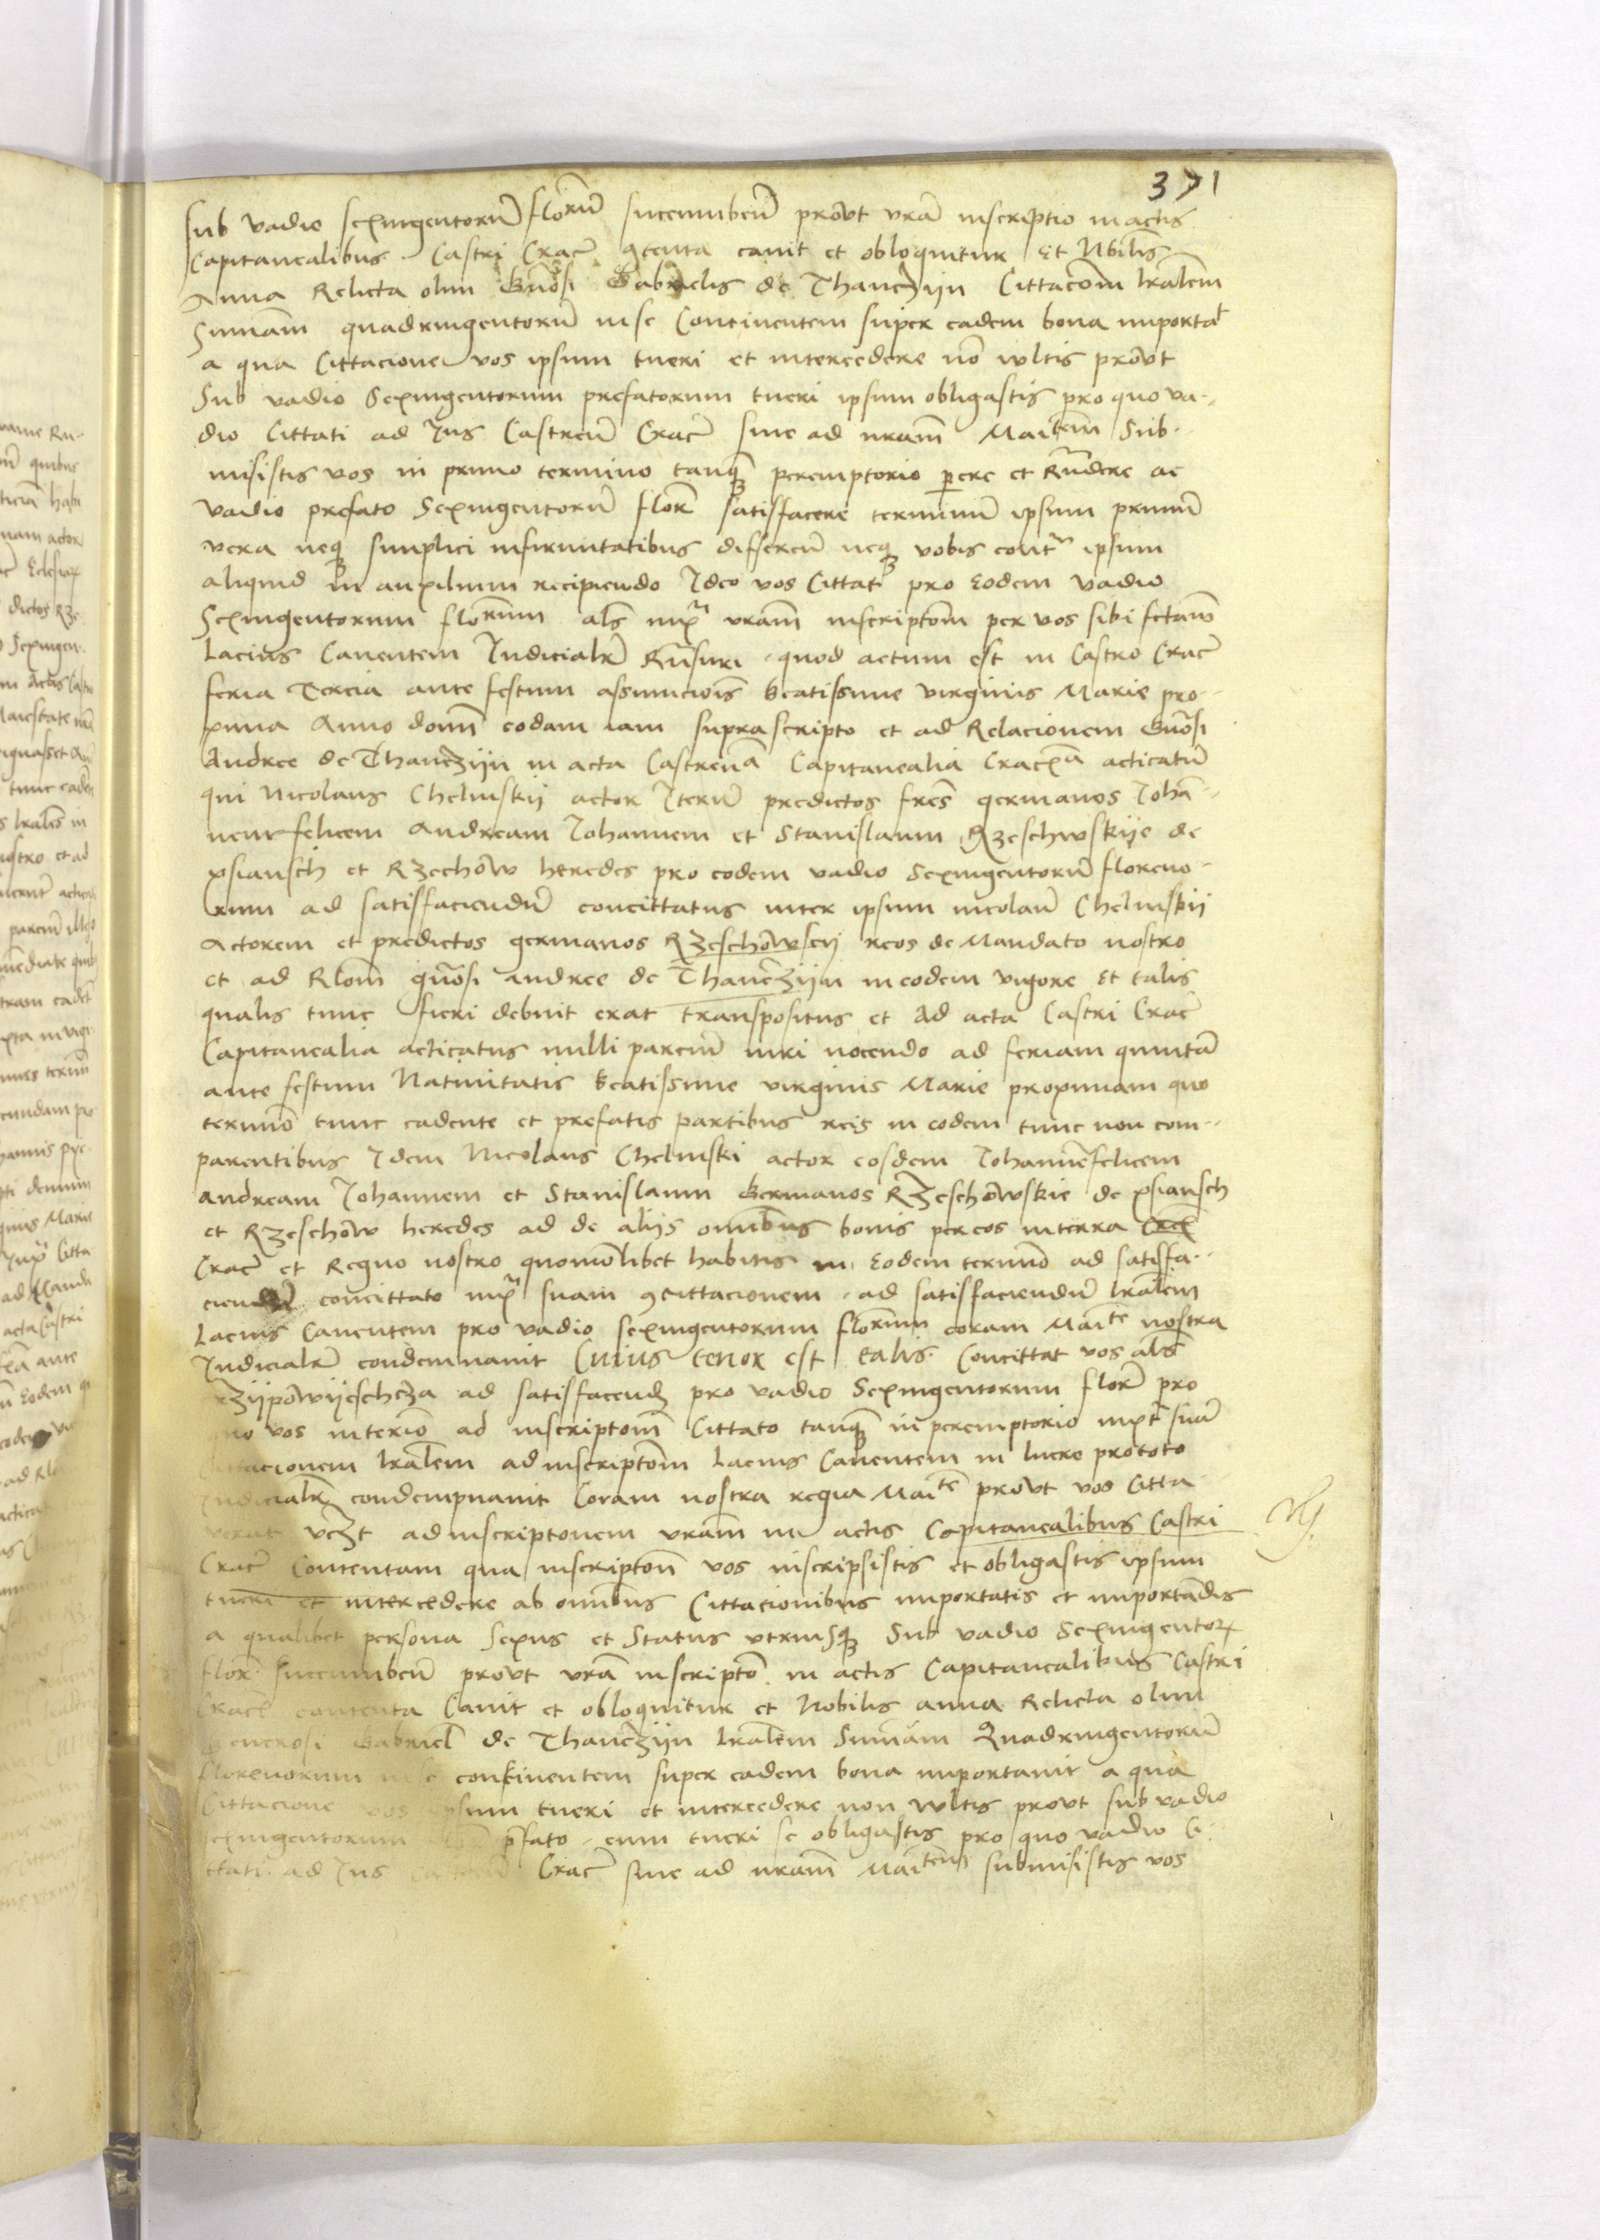 371
sub vadio sexingentorũ florũ succumbeñ prout vrã inscriptio in actis
Capitanealibus Castri Crac̃ 9tenta canit et obloquitur Et Nbilis
Anna Relicta olim Gñosi Gabrielis de Thanczyn Cittacom̃ lralem̃
Summam̃ quadringentorũ in se Continentem super eadem bona importat̃
a qua Cittacione vos ipsum tueri et intercedere nõ wltis prout
Sub vadio Sexingentorum prefatorum tueri ipsum obligastis pro quo va-
dio Cittati ad Jus Castreñ Crac̃ siue ad nram̃ Maitem̃ Sub-
misistis vos in primo termino tanq̃ peremptorio pere et Rñdere ac
vadio prefato Sexingentorũ flor̃ satisfacere terminũ ipsum primũ
vera neq̃ simplici infirmitatibus differeñ neq̃ vobis contr̃ ipsum
aliquid in auxilium recipiendo Ideo vos Cittat̃ pro Eodem vadio
Sexingentorum florenum als̃ iuxᵃ vram̃ inscriptom̃ per vos sibi fctam̃
Lacius Canentem Judicialr̃ Rñsuri quod actum est in Castro Crac̃
feria Tercia ante festum assumcois̃ beatissime virginis Marie pro-
xima Anno dom̃ eodam iam suprascripto et ad Relacionem Gñosi
Andree de Thanczyn in acta Castreñᵃ Capitanealia Cracxᵃ acticatũ
qui Nicolaus Chelmskij actor Iterũ predictos fres̃ germanos Johã-
nemfelicem Andream Johannem et Stanislaum Rzeschwskije de
psiansch et Rzechow heredes pro eodem vadio Sexingentorũ floreno-
rum ad satisfaciendũ concittatus inter ipsum nicolaũ Chelmskij
Actorem et predictos germanos Rzeschowscij reos de Mandato nostro
et ad Rlom̃ gñosi andree de Thanczyn in eodem vigore Et talis
qualis tunc fieri debuit erat transpositus et Ad acta Castri Crac̃
Capitanealia acticatus nulli parciũ iuri nocendo ad feriam quintã
ante festum Natiuitatis beatissime virginis Marie proximam quo
termiõ tunc cadente et prefatis partibus reis in eodem tunc non com-
parentibus Idem Nicolaus Chelmski actor eosdem Johannẽfelicem
andream Johannem et Stanislaum Germanos Rzeschowskie de psiansch
et Rzeschow heredes ad de alijs omibus bonis per eos in terra
Crac̃ et Regno nostro quomõlibet habitis in Eodem termino ad satisfa-
ciendũ concittato iuxᵃ suam 9cittacionem ad satisfaciendũ lralem̃
Lacius Canentem pro vadio sexingentorum florenum coram Maite nostra
Judicialr̃ condemnauit Cuius tenor est talis Concittat vos als̃
rzijpowijeschcza ad satisfacend̃ pro vadio Sexingentorum flor̃ pro
quo vos in termio ad inscriptom̃ Cittato tanq̃ in peremptorio iuxtᵃ suã
Cittacionem lralem̃ ad inscriptom̃ Lacius Canentem in lucro prototo
Judicialr̃ condempnauit Coram nostra regia Maite prout vos Citta-
verat vczt ad inscriptonem vram̃ in actis Capitanealibus Castri
Crac̃ Contentam qua inscripton̄ vos inscripsistis et obligastis ipsum
tueri et intercedere ab omibus Cittacionibus importatis et importandis
a qualibet persona Sexus et Status vtriusq̃ Sub vadio Sexingentor
flor̃ succumbeñ prout vrã inscriptõ in actis Capitanealibus Castri
Crac̃ contenta Canit et obloquitur et Nobilis anna Relicta olim
Generosi Gabriel̃ de Thanczyn lralem̃ Summam Quadringentorũ
florenorum in se continentem super eadem bona importauit a qua
Cittacione vos ipsum tueri et intercedere non wltis prout sub vadio
sexingentorum p̃fato eum tueri se obligastis pro quo vadio Ci-
ttati ad Jus Crac̃ siue ad nram̃ Maitem̃ submisistis vos